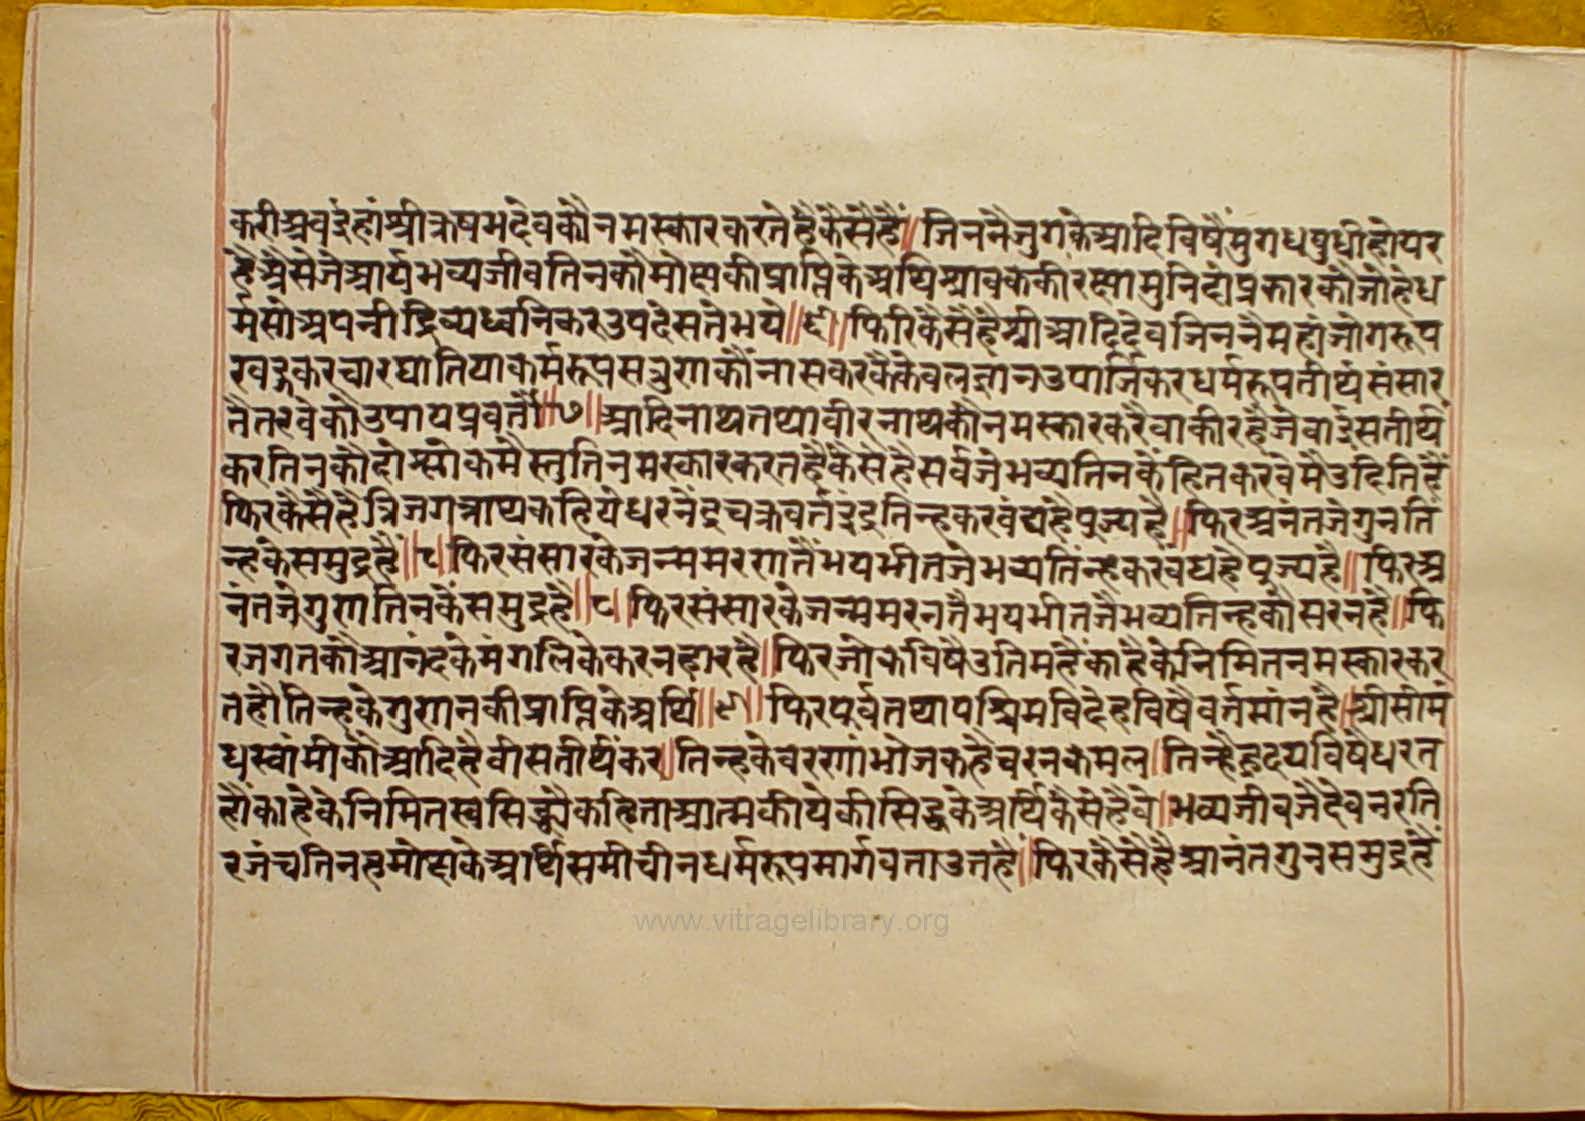 करीअवइहांश्रीऋषभदेवकौनमस्कारकरतेहैकैसेहैं॥जिननैजुगकेआदिविषैंमुगधपुधीहोयर
हैअैसेजेआर्यभव्यजीवतिनकौमोक्षकीप्राप्तिकेअर्थिश्रावककीरक्षामुनिदोप्रकारकौजोहैध
र्मसोअपनीदिव्यध्वनिकरउपदेसतेभये॥६॥फिरिकैसेहैश्रीआदिदेवजिननैमहांजोगरूप
खड्गकरचारघातियाकर्मरूपसत्रुगाकौंनासकरकैकेवलज्ञानउपार्जिकरधर्मरूपतीर्थसंसार
तैतरवेकौउपायप्रवर्तौ॥७॥आदिनाथतथावीरनाथकौनमस्कारकरैवाकीरहैजेवाईसतीर्थ
करतिनकौदोश्लोकमैस्तुतिनमस्कारकरतहैकैसेहैसर्वजेभव्यतिनकेहितकरवेमैउदितिहैं
फिरकैसेहैत्रिजगन्नाथकहियेधरनेंद्रचक्रवर्तइंद्रतिन्हकरवंद्यहैपुज्यहै॥फिरअनंतजेगुनति
न्हकेसमुद्रहैं॥८॥फिरसंसारकेजन्ममरणतैंभयभीतजेभव्यतिंन्हकरवंद्यहैपुज्यहै॥फिरअ
नंतजेगुणतिनकेसमुद्रहै॥८॥फिरसंसारकेजन्ममरनतैभयभीतजेभव्यतिन्हकौसरनहै॥फि
रजगतकौआनंदकेमंगलिकेकरनहारहै॥फिरजोकविषैउतिमहैकाहैकेनिमितनमस्कारकर
तेहौतिन्हकेगुणनकीप्राप्तिकेअर्थि॥९॥फिरपूर्वतथापश्चिमविदेहविषैवर्तमांनहै।श्रीसीमं
धस्वांमीकौआदिहैवीसतीर्थंकर।तिन्हकेचरणांभोजकहैचरनकमल।तिन्हैहृदयविषैधरत
हौंकाहेकेनिमितस्वसिद्ध्यैकहिताआत्मकीयेकीसिद्धकेअर्थिकैसेहैवे।भव्यजीवजेदेवनरति
रजंचतिनहमोक्षकेअर्थिसमीचीनधर्मरूपमार्गवताउतहै॥फिरकैसेहैआनंतगुनसमुद्रहैं
www.vitragelibrary.org